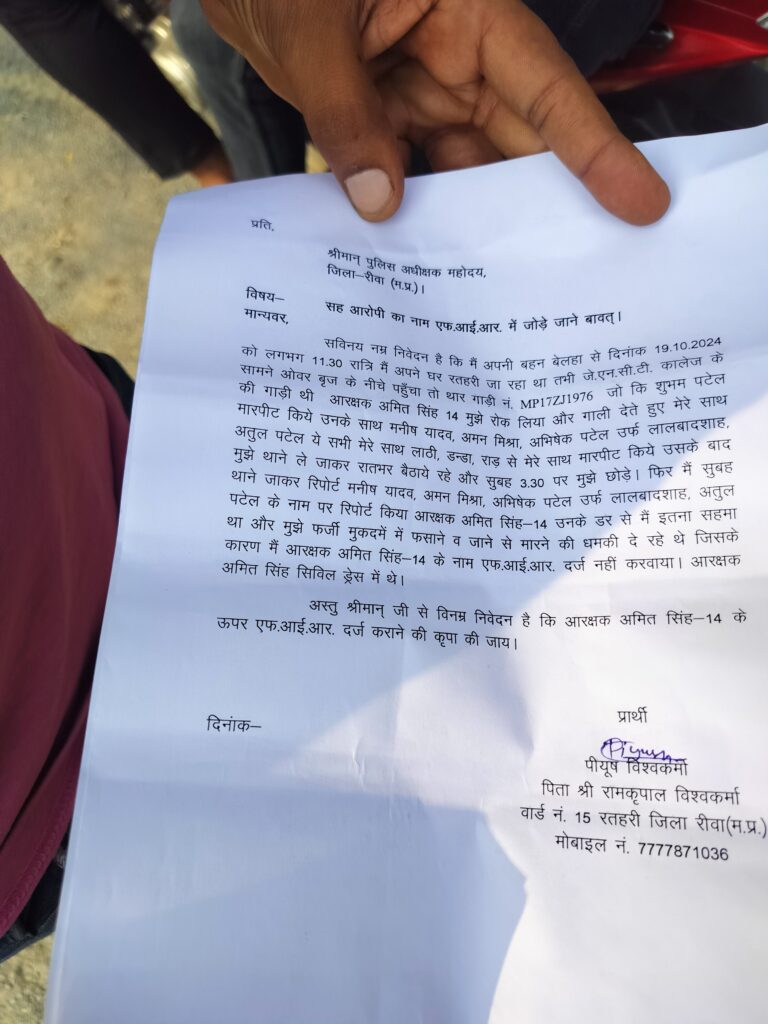 प्रति,
श्रीमान् पुलिस अधीक्षक महोदय,
जिला–रीवा (म.प्र.)।
विषय– सह आरोपी का नाम एफ.आई.आर. में जोड़े जाने बावत्।
मान्यवर,
सविनय नम्र निवेदन है कि मैं अपनी बहन बेलहा से दिनांक 19.10.2024
को लगभग 11.30 रात्रि मैं अपने घर रतहरी जा रहा था तभी जे.एन.सी.टी. कालेज के
सामने ओवर बृज के नीचे पहुँचा तो थार गाड़ी नं. MP17ZJ1976 जो कि शुभम पटेल
की गाड़ी थी आरक्षक अमित सिंह 14 मुझे रोक लिया और गाली देते हुए मेरे साथ
मारपीट किये उनके साथ मनीष यादव, अमन मिश्रा, अभिषेक पटेल उर्फ लालबादशाह,
अतुल पटेल ये सभी मेरे साथ लाठी, डन्डा, राड़ से मेरे साथ मारपीट किये उसके बाद
मुझे थाने ले जाकर रातभर बैठाये रहे और सुबह 3.30 पर मुझे छोड़े। फिर मैं सुबह
थाने जाकर रिपोर्ट मनीष यादव, अमन मिश्रा, अभिषेक पटेल उर्फ लालबादशाह, अतुल
पटेल के नाम पर रिपोर्ट किया आरक्षक अमित सिंह–14 उनके डर से मैं इतना सहमा
था और मुझे फर्जी मुकदमें में फसाने व जाने से मारने की धमकी दे रहे थे जिसके
कारण मैं आरक्षक अमित सिंह–14 के नाम एफ.आई.आर. दर्ज नहीं करवाया। आरक्षक
अमित सिंह सिविल ड्रेस में थे।
अस्तु श्रीमान् जी से विनम्र निवेदन है कि आरक्षक अमित सिंह–14 के
ऊपर एफ.आई.आर. दर्ज कराने की कृपा की जाय।
दिनांक–
प्रार्थी
Piyush
पीयूष विश्वकर्मा
पिता श्री रामकृपाल विश्वकर्मा
वार्ड नं. 15 रतहरी जिला रीवा(म.प्र.)
मोबाइल नं. 7777871036